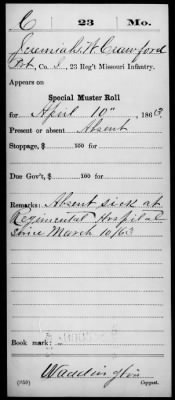 C 23 Mo.
Jeremiah W Crawford
Pvt, Co. I, 23 Reg't Missouri Infantry.
Appears on
Special Muster Roll
for April 10", 1863.
Present or absent Absent
Stoppage, $ 100 for
Due Gov't, $ 100 for
Remarks: Absent sick at
Regimental Hospital
since March 10/63
Book mark:
Waddington
(350) Copyist.